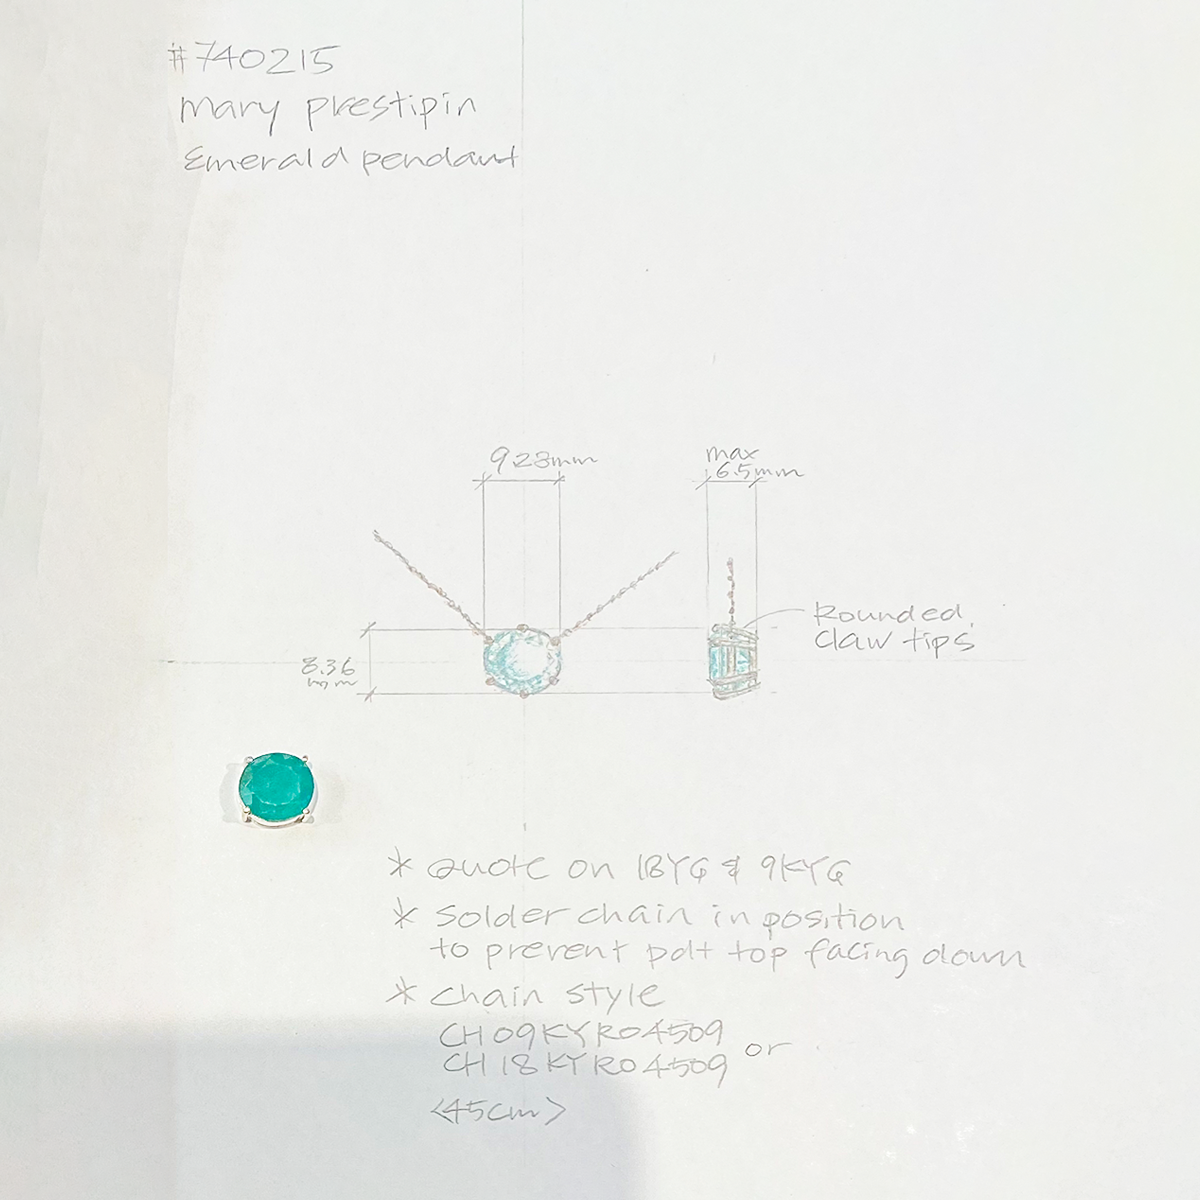 #740215
Mary Prestipin
Emerald pendant
9.23mm
max
6.5mm
Rounded
claw tips
8.36
mm
* Quote on 18YG & 9KYG
* Solder chain in position
to prevent pdt top facing down
* Chain style
CH09KYRO4509
CH18KYRO4509 or
<45cm>